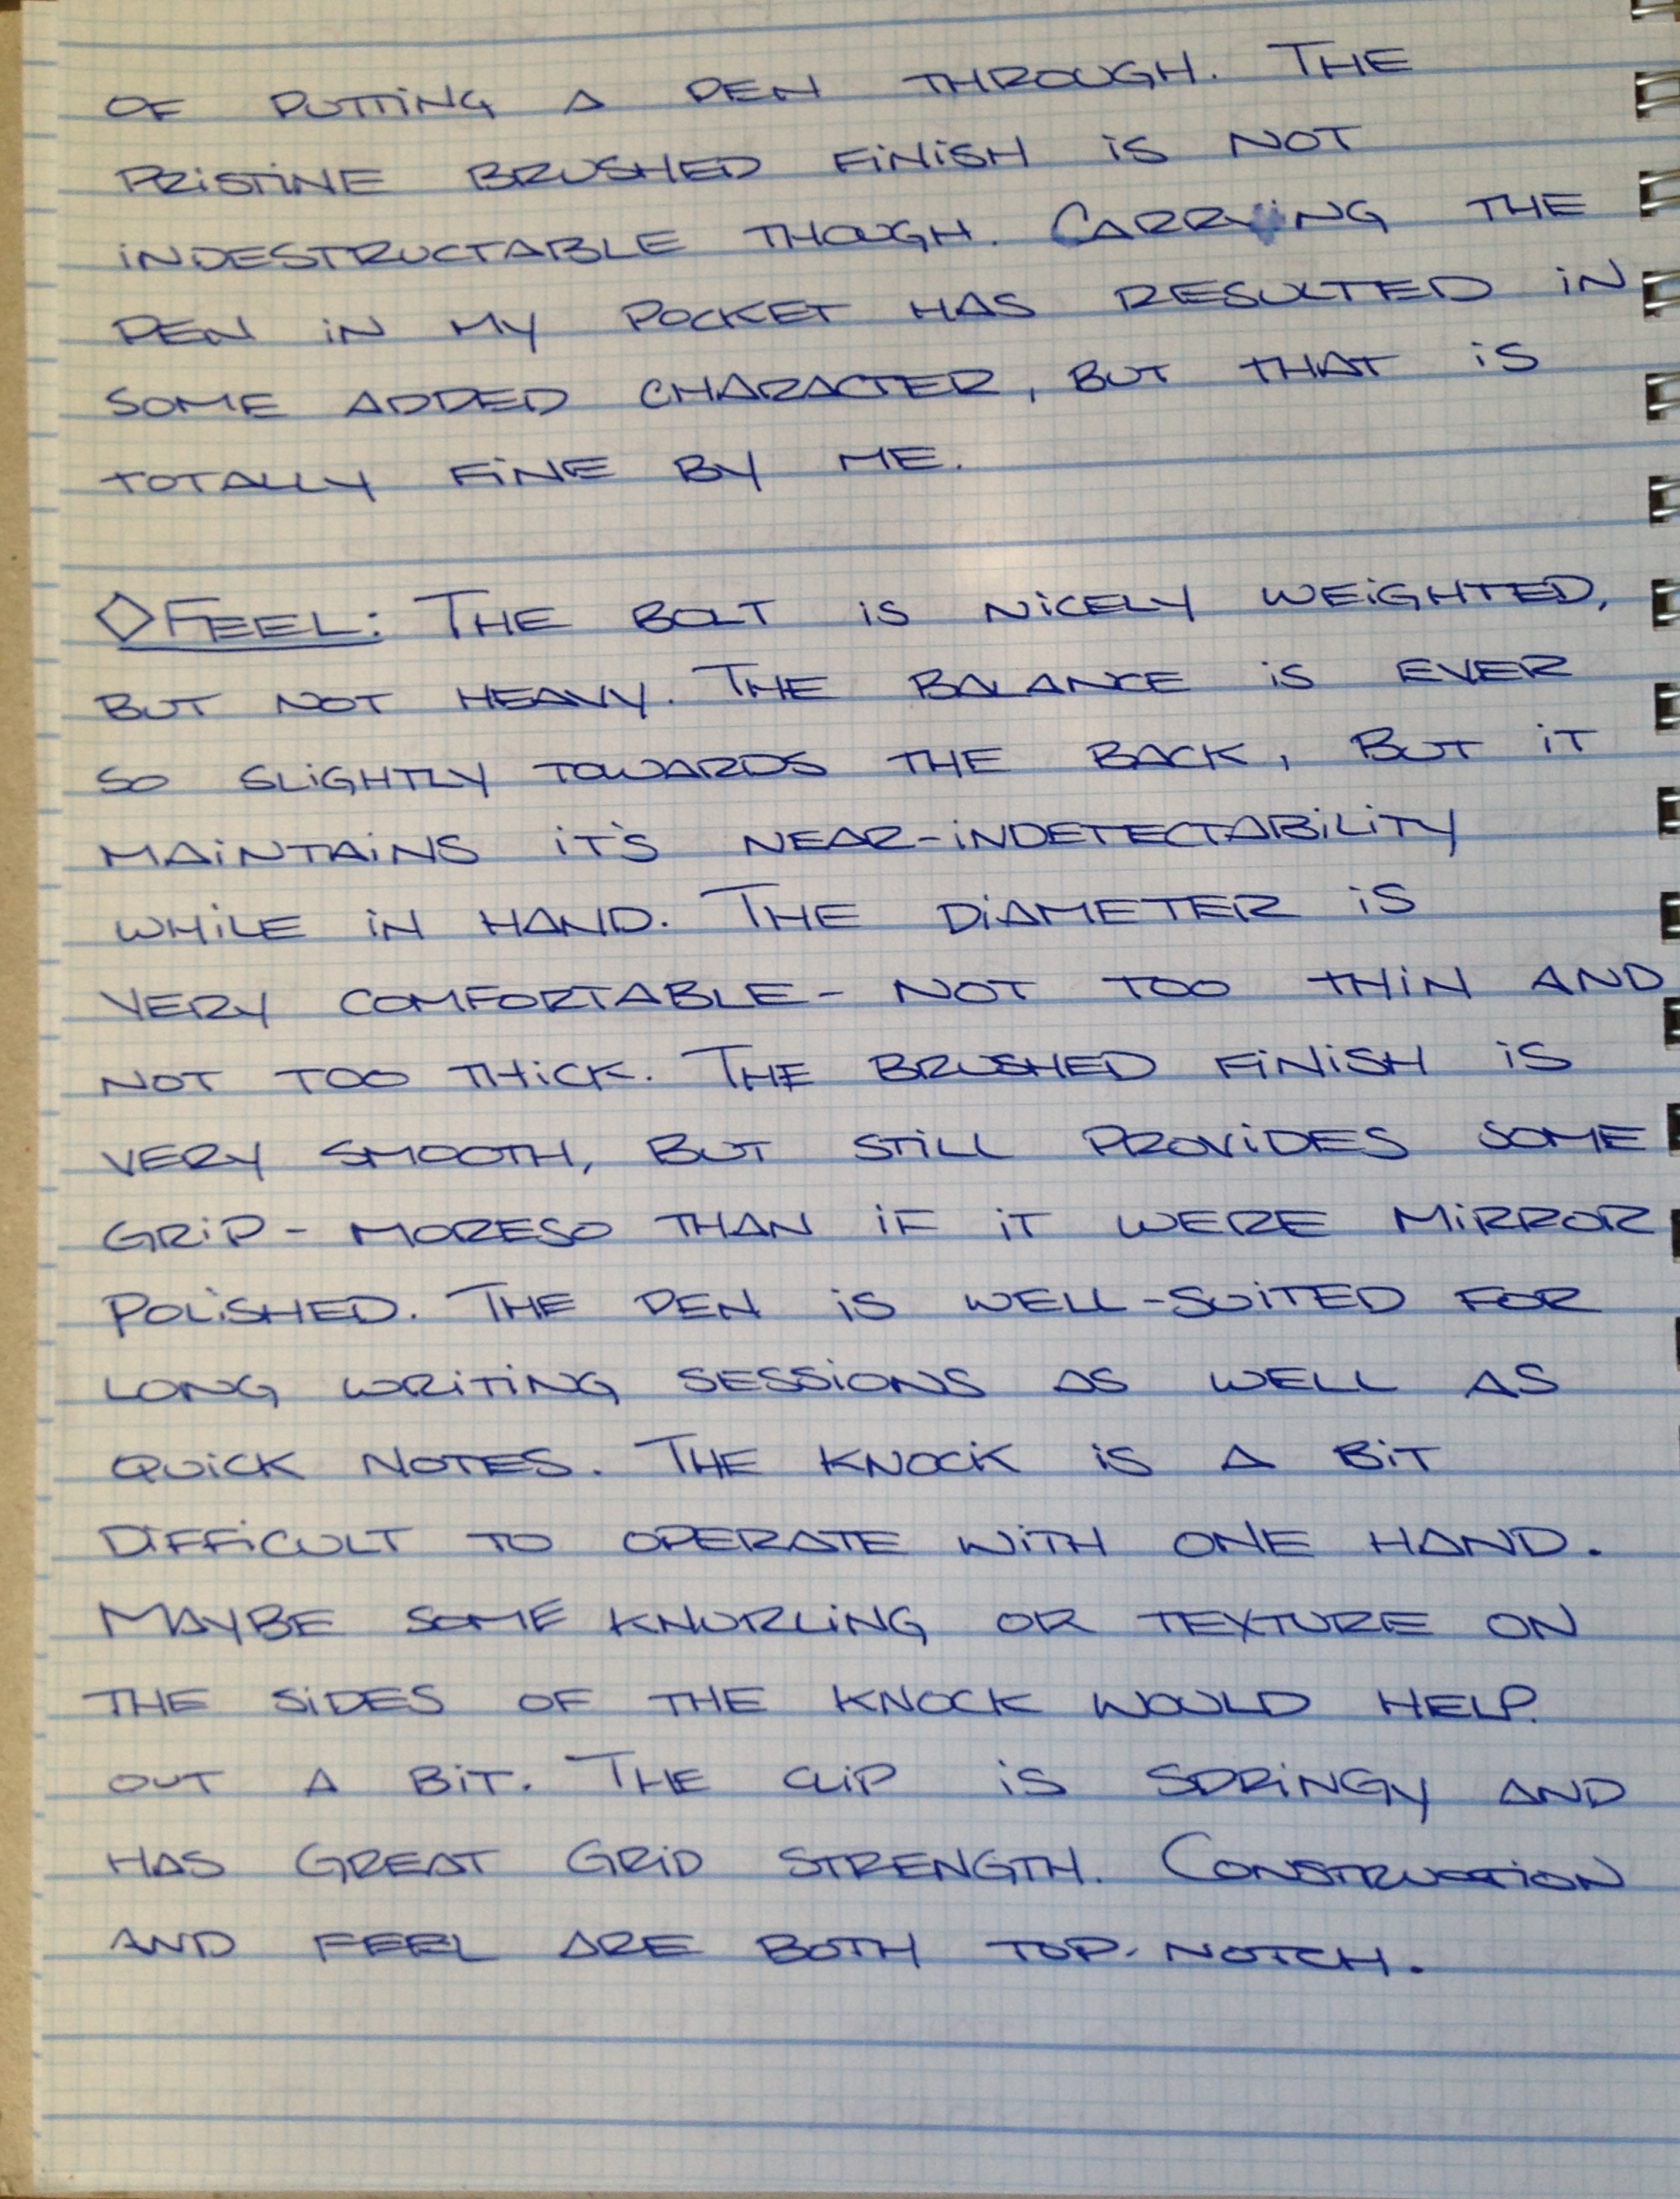 OF PUTTING A PEN THROUGH. THE
PRISTINE BRUSHED FINISH IS NOT
INDESTRUCTABLE THOUGH. CARRYING THE
PEN IN MY POCKET HAS RESULTED IN
SOME ADDED CHARACTER, BUT THAT IS
TOTALLY FINE BY ME.
◇FEEL: THE BOLT IS NICELY WEIGHTED,
BUT NOT HEAVY. THE BALANCE IS EVER
SO SLIGHTLY TOWARDS THE BACK, BUT IT
MAINTAINS IT'S NEAR-INDETECTABILITY
WHILE IN HAND. THE DIAMETER IS
VERY COMFORTABLE - NOT TOO THIN AND
NOT TOO THICK. THE BRUSHED FINISH IS
VERY SMOOTH, BUT STILL PROVIDES SOME
GRIP - MORESO THAN IF IT WERE MIRROR
POLISHED. THE PEN IS WELL-SUITED FOR
LONG WRITING SESSIONS AS WELL AS
QUICK NOTES. THE KNOCK IS A BIT
DIFFICULT TO OPERATE WITH ONE HAND.
MAYBE SOME KNURLING OR TEXTURE ON
THE SIDES OF THE KNOCK WOULD HELP
OUT A BIT. THE CLIP IS SPRINGY AND
HAS GREAT GRIP STRENGTH. CONSTRUCTION
AND FEEL ARE BOTH TOP-NOTCH.